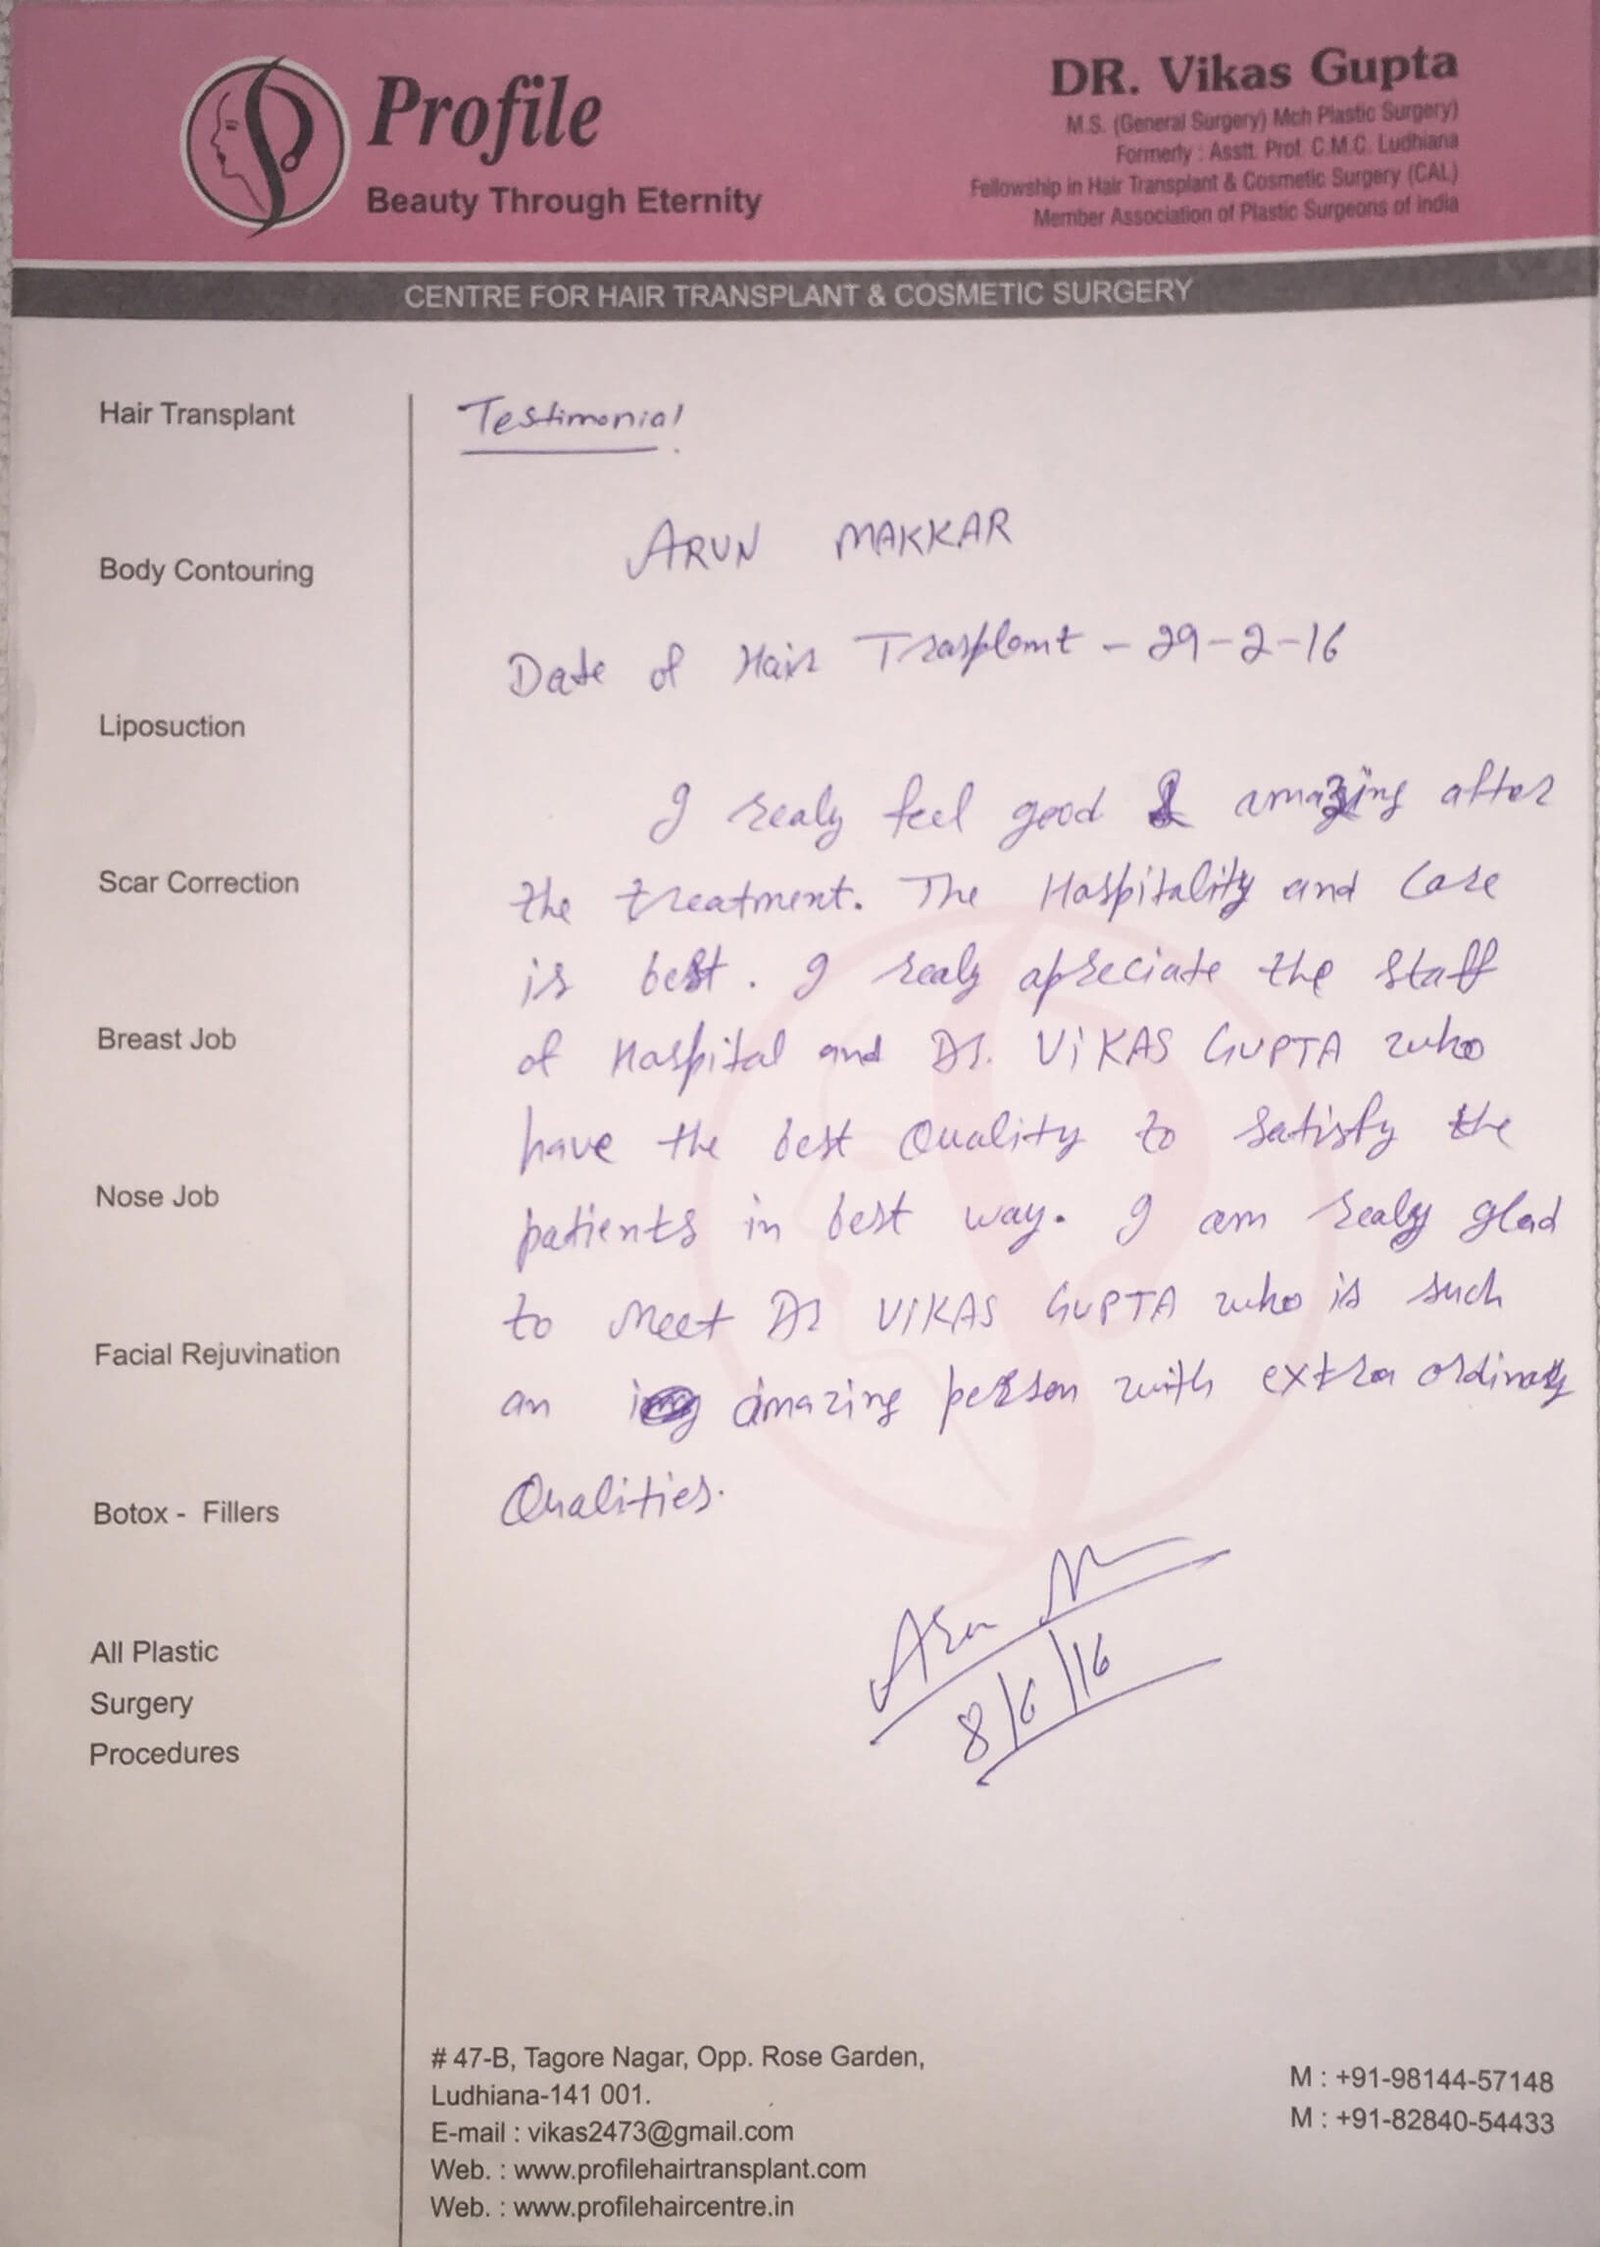 Profile
Beauty Through Eternity
DR. Vikas Gupta
M.S. (General Surgery) Mch Plastic Surgery)
Formerly : Asstt. Prof. C.M.C. Ludhiana
Fellowship in Hair Transplant & Cosmetic Surgery (CAL)
Member Association of Plastic Surgeons of India
CENTRE FOR HAIR TRANSPLANT & COSMETIC SURGERY
Hair Transplant
Body Contouring
Liposuction
Scar Correction
Breast Job
Nose Job
Facial Rejuvination
Botox - Fillers
All Plastic
Surgery
Procedures
Testimonial.
ARUN MAKKAR
Date of Hair Trasplant - 29-2-16
I realy feel good & amazing after
the treatment. The Hospitality and Care
is best. I realy apreciate the staff
of Hospital and Dr. ViKAS GUPTA who
have the best Quality to satisfy the
patients in best way. I am realy glad
to Meet Dr VIKAS GUPTA who is such
an amazing person with extra ordinary
Qualities.
Arun M
8/6/16
# 47-B, Tagore Nagar, Opp. Rose Garden,
Ludhiana-141 001.
E-mail : vikas2473@gmail.com
Web. : www.profilehairtransplant.com
Web. : www.profilehaircentre.in
M : +91-98144-57148
M : +91-82840-54433